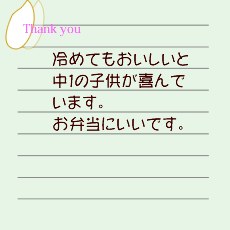 Thank you
冷めてもおいしいと
中1の子供が喜んで
います。
お弁当にいいです。